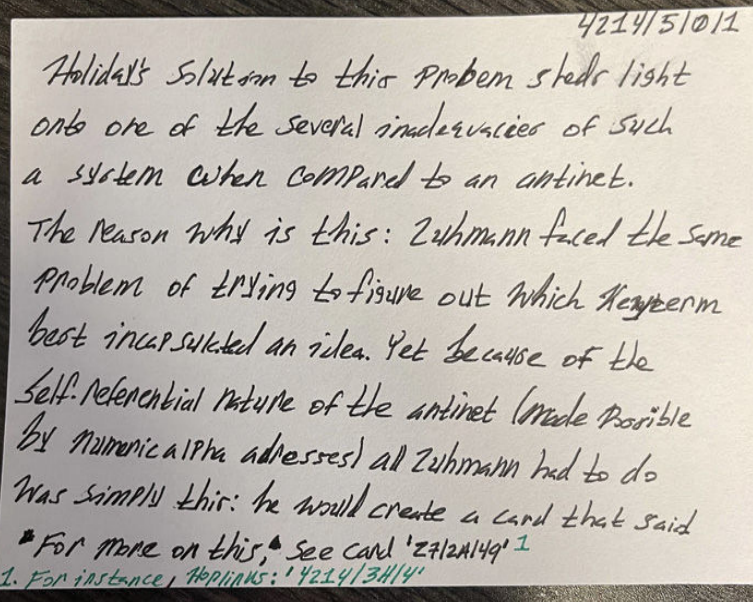 4214/5/0/1
Holiday's Solution to this Probem sheds light
onto one of the several inadequacies of such
a system when compared to an antinet.
The reason why is this: Luhmann faced the same
problem of trying to figure out which Keyterm
best incapsulated an idea. Yet because of the
Self-referential nature of the antinet (made Possible
by numericalpha adresses) all Luhmann had to do
was simply this: he would create a card that said
"For more on this," see card '27/2A/49' 1
1. For instance, Hoplinks: '4214/3A/4'